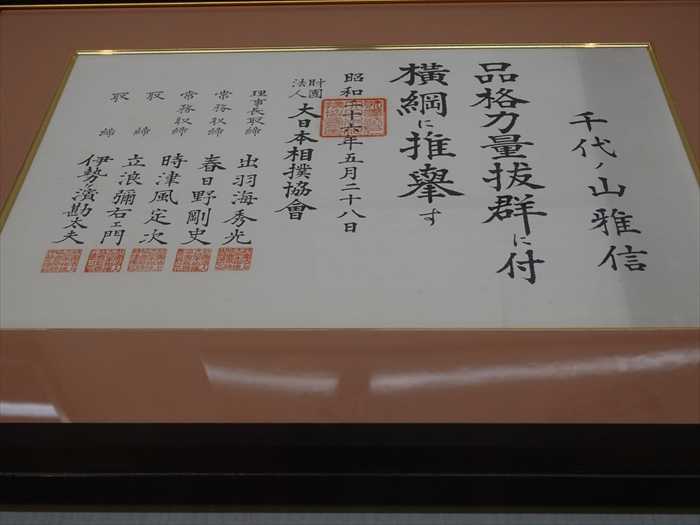 千代ノ山雅信
品格力量抜群に付
横綱に推擧す
昭和二十六年五月二十八日
財團法人大日本相撲協會
理事長取締 出羽海秀光
常務取締 春日野剛史
常務取締 時津風定次
取締 立浪彌右エ門
取締 伊勢ヶ濱勘太夫